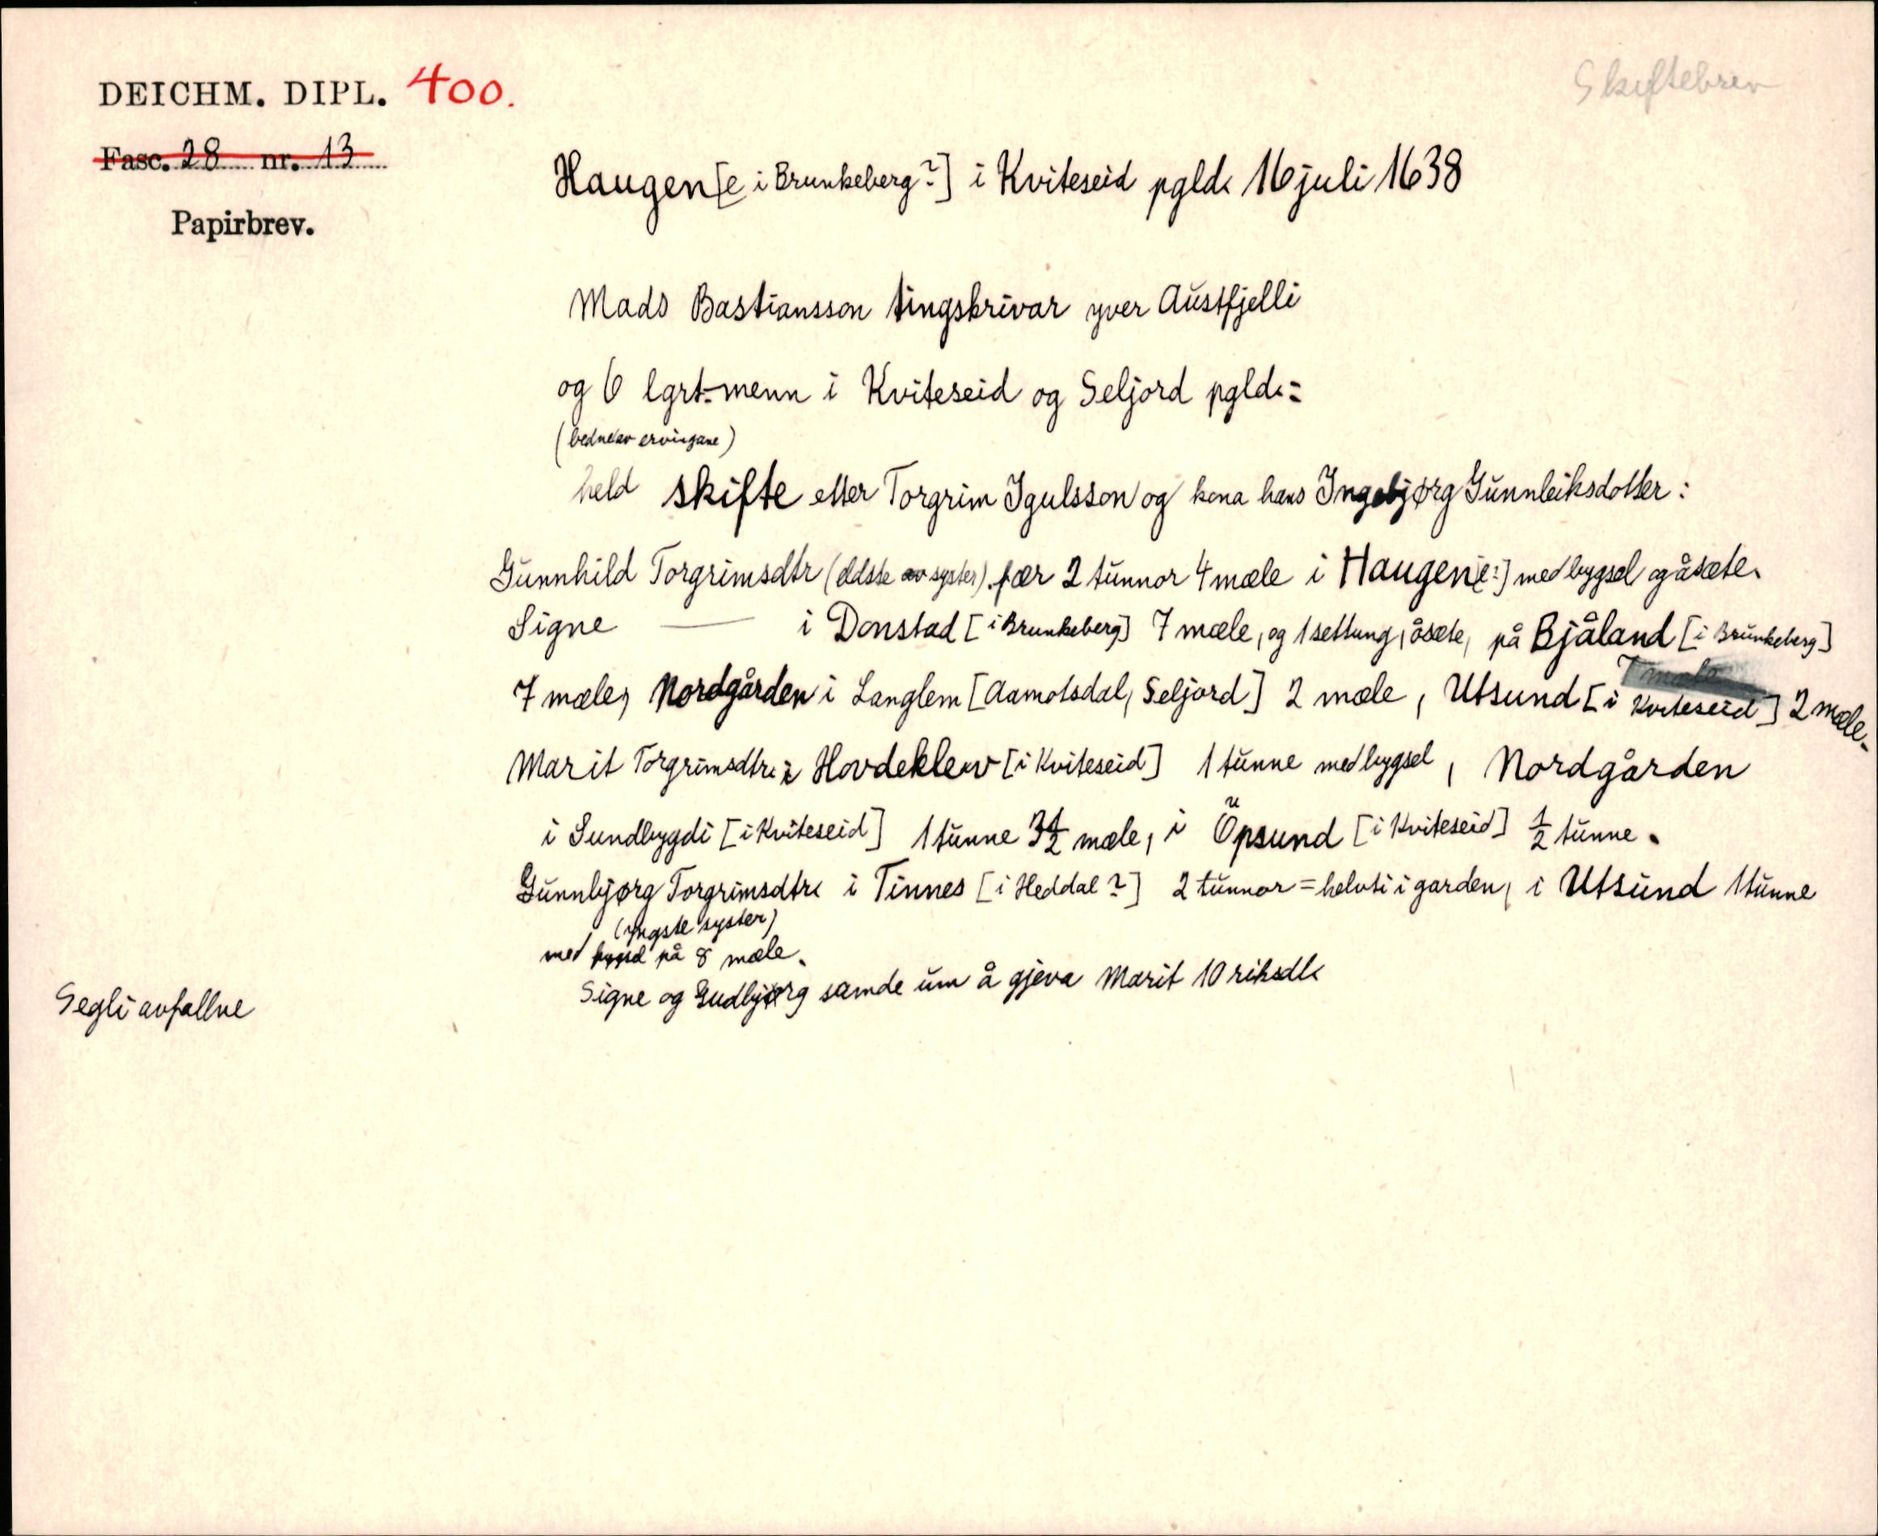 DEICHM. DIPL. 400.
Skiftebrev
Fasc. 28 nr. 13
Papirbrev.
Haugen[e i Brunkeberg?] i Kviteseid pgld. 16 juli 1638
Mads Bastiansson tingskrivar yver Austfjelli
og 6 lgrt-menn i Kviteseid og Seljord pgld.:
(bedne av ervingane)
held skifte etter Torgrim Igulsson og kona hans Ingebjørg Gunnleiksdotter:
Gunnhild Torgrimsdtr (eldste syster) fær 2 tunnor 4 mæle i Haugen[e?] med bygsel og åsæte.
Signe — i Donstad [i Brunkeberg] 7 mæle, og 1 settung, åsæte, på Bjåland [i Brunkeberg]
7 mæle, Nordgården i Langlem [Aamotsdal, Seljord] 2 mæle, Utsund [i Kviteseid] 2 mæle.
Marit Torgrimsdtr. i Hovdeklew [i Kviteseid] 1 tunne med bygsel, Nordgården
i Sundbygdi [i Kviteseid] 1 tunne 3½ mæle, i Öpsund [i Kviteseid] ½ tunne.
Gunnbjørg Torgrimsdtr. i Tinnes [i Heddal?] 2 tunnor = helvti i garden, i Utsund 1 tunne
(yngste syster)
med bygsel på 8 mæle.
Signe og Gudbjørg samde um å gjeva Marit 10 riksdl.
Segli avfallne